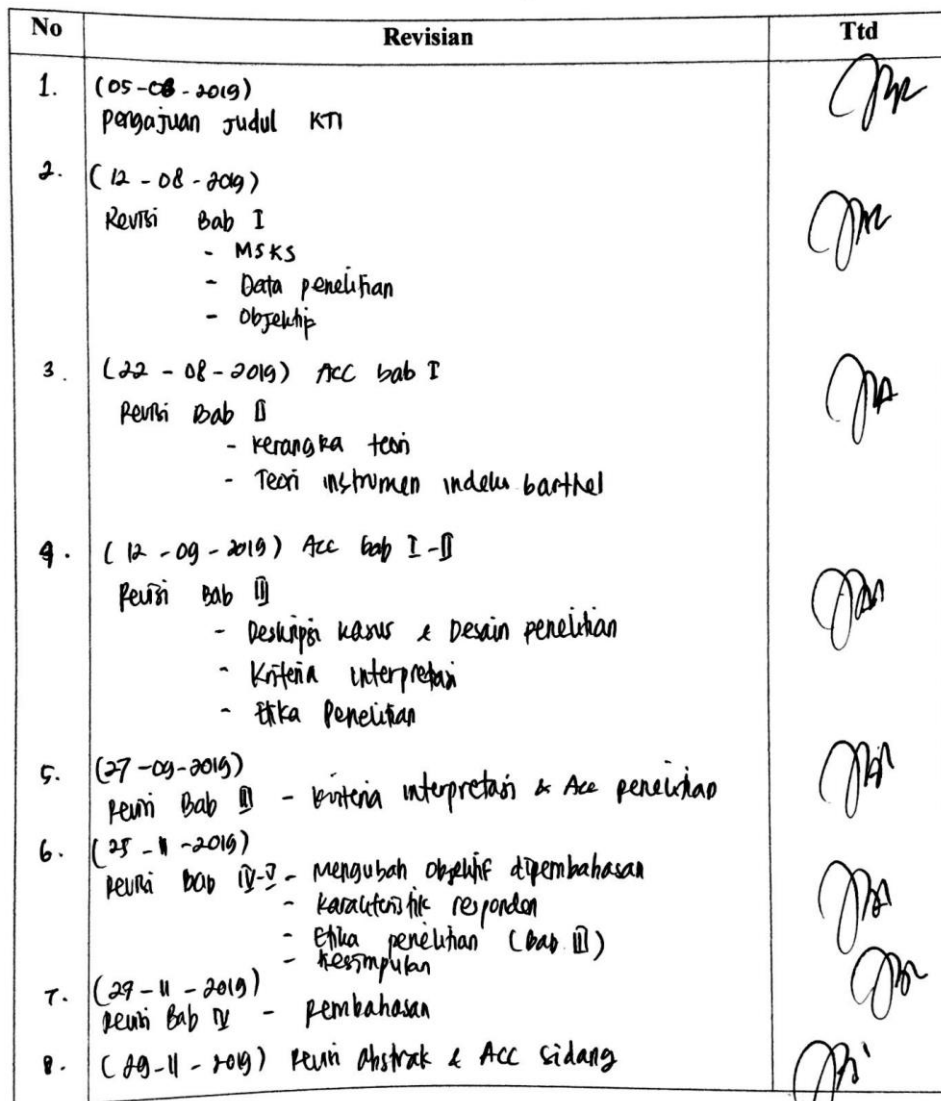 No Revisian Ttd
1. (05-08-2019)
Pengajuan Judul KTI
2. (12-08-2019)
Revisi Bab I
- MSKS
- Data penelitian
- Objektip
3. (22-08-2019) Acc bab I
Revisi Bab II
- Kerangka teori
- Teori instrumen indeks barthel
4. (12-09-2019) Acc bab I-II
Revisi Bab III
- Deskripsi kasus & Desain penelitian
- Kriteria interpretasi
- Etika Penelitian
5. (27-09-2019)
Revisi Bab III - Kriteria interpretasi & Acc penelitian
6. (25-11-2019)
Revisi bab IV-V - Mengubah objektif dipembahasan
- Karakteristik responden
- Etika penelitian (bab III)
- Kesimpulan
7. (29-11-2019)
Revisi Bab IV - pembahasan
8. (29-11-2019) Revisi abstrak & Acc sidang